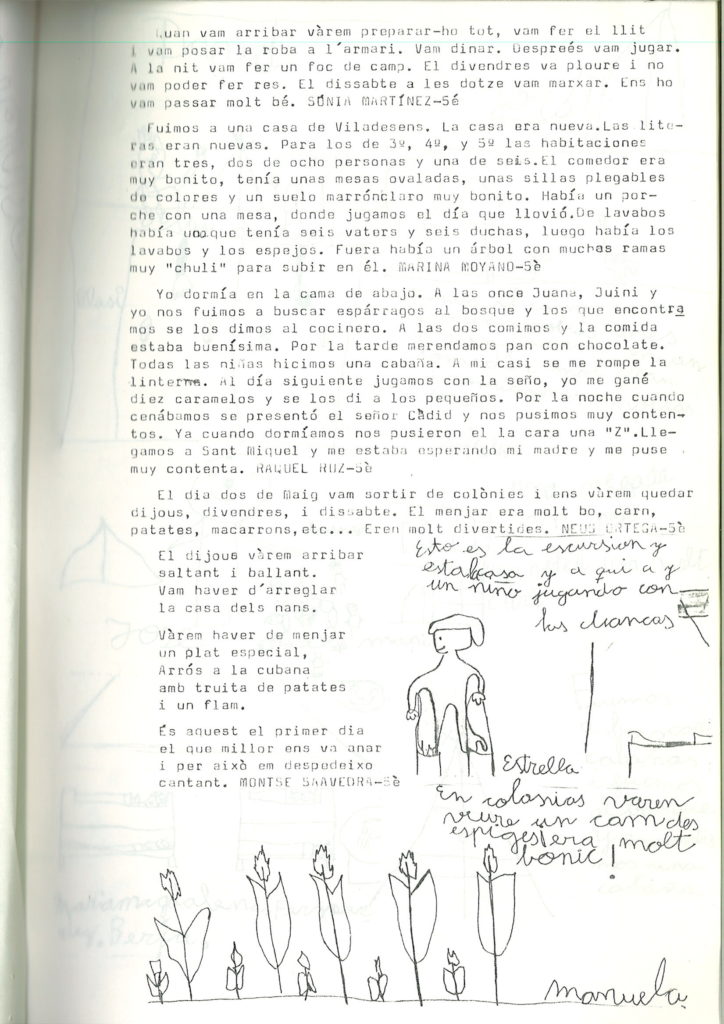 Quan vam arribar vàrem preparar-ho tot, vam fer el llit
i vam posar la roba a l'armari. Vam dinar. Despreés vam jugar.
A la nit vam fer un foc de camp. El divendres va ploure i no
vam poder fer res. El dissabte a les dotze vam marxar. Ens ho
vam passar molt bé. SÓNIA MARTÍNEZ-5é
Fuimos a una casa de Viladesens. La casa era nueva.Las lite-
ras eran nuevas. Para los de 3º, 4º, y 5º las habitaciones
eran tres, dos de ocho personas y una de seis.El comedor era
muy bonito, tenía unas mesas ovaladas, unas sillas plegables
de colores y un suelo marrónclaro muy bonito. Había un por-
che con una mesa, donde jugamos el día que llovió.De lavabos
había uno que tenía seis vaters y seis duchas, luego había los
lavabos y los espejos. Fuera había un árbol con muchas ramas
muy "chuli" para subir en él. MARINA MOYANO-5è
Yo dormía en la cama de abajo. A las once Juana, Juini y
yo nos fuimos a buscar espárragos al bosque y los que encontra
mos se los dimos al cocinero. A las dos comimos y la comida
estaba buenísima. Por la tarde merendamos pan con chocolate.
Todas las niñas hicimos una cabaña. A mi casi se me rompe la
linterna. Al día siguiente jugamos con la seño, yo me gané
diez caramelos y se los di a los pequeños. Por la noche cuando
cenábamos se presentó el señor Càdid y nos pusimos muy conten-
tos. Ya cuando dormíamos nos pusieron el la cara una "Z".Lle-
gamos a Sant Miquel y me estaba esperando mi madre y me puse
muy contenta. RAQUEL RUZ-5è
El dia dos de Maig vam sortir de colònies i ens vàrem quedar
dijous, divendres, i dissabte. El menjar era molt bo, carn,
patates, macarrons,etc... Eren molt divertides. NEUS ORTEGA-5è
El dijous vàrem arribar
saltant i ballant.
Vam haver d'arreglar
la casa dels nans.
Vàrem haver de menjar
un plat especial,
Arrós a la cubana
amb truita de patates
i un flam.
És aquest el primer dia
el que millor ens va anar
i per això em despedeixo
cantant. MONTSE SAAVEDRA-5è
Esto es la escursion y
esta casa y a qui a y
un niño jugando con
las chancas
Estrella
En colonias varen
veure un cam des
espiges era molt
bonic!
manuela